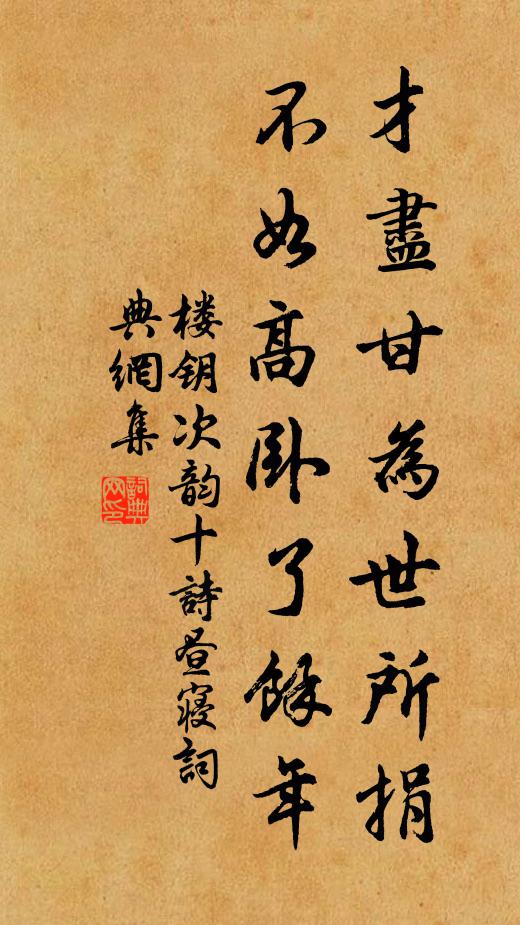 才盡甘為世所捐
不如高卧了餘年
楼钥次韵十詩昼寝詞
典網集
詞典网印